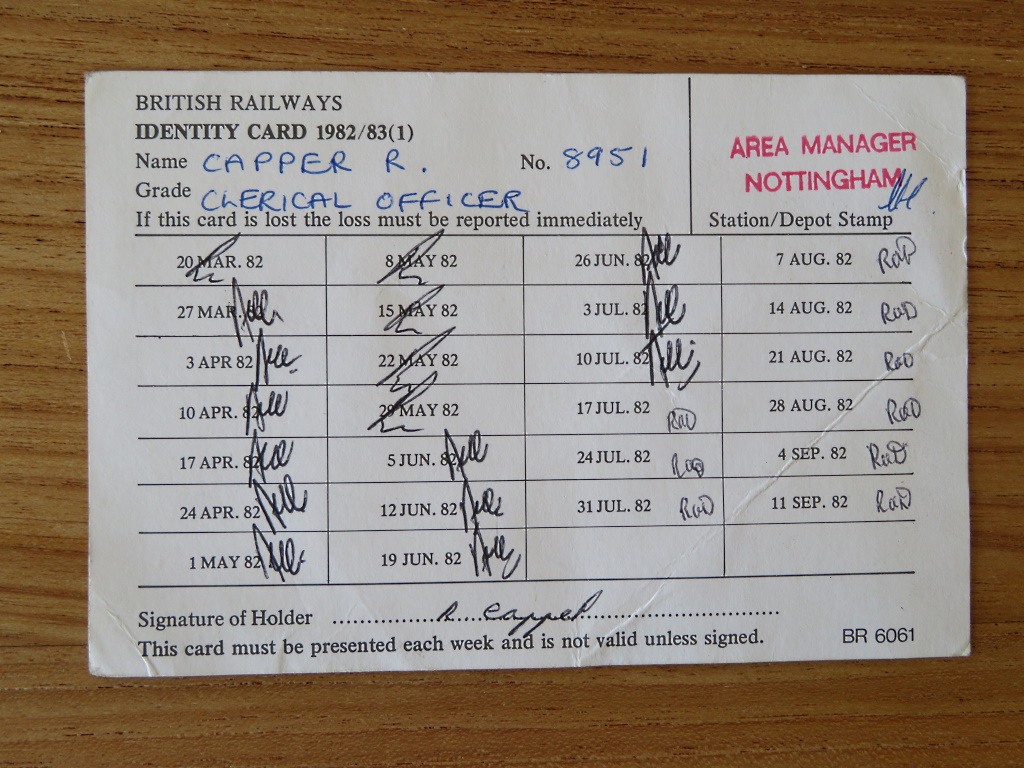 BRITISH RAILWAYS
IDENTITY CARD 1982/83(1)
Name CAPPER R. No. 8951
Grade CLERICAL OFFICER
If this card is lost the loss must be reported immediately
AREA MANAGER
NOTTINGHAM
Station/Depot Stamp
20 MAR. 82 8 MAY 82 26 JUN. 82 7 AUG. 82 RAD
27 MAR. 82 15 MAY 82 3 JUL. 82 14 AUG. 82 RAD
3 APR 82 22 MAY 82 10 JUL. 82 21 AUG. 82 RAD
10 APR. 82 29 MAY 82 17 JUL. 82 RAD 28 AUG. 82 RAD
17 APR. 82 5 JUN. 82 24 JUL. 82 RAD 4 SEP. 82 RAD
24 APR. 82 12 JUN. 82 31 JUL. 82 RAD 11 SEP. 82 RAD
1 MAY 82 19 JUN. 82
Signature of Holder R. Capper
This card must be presented each week and is not valid unless signed. BR 6061